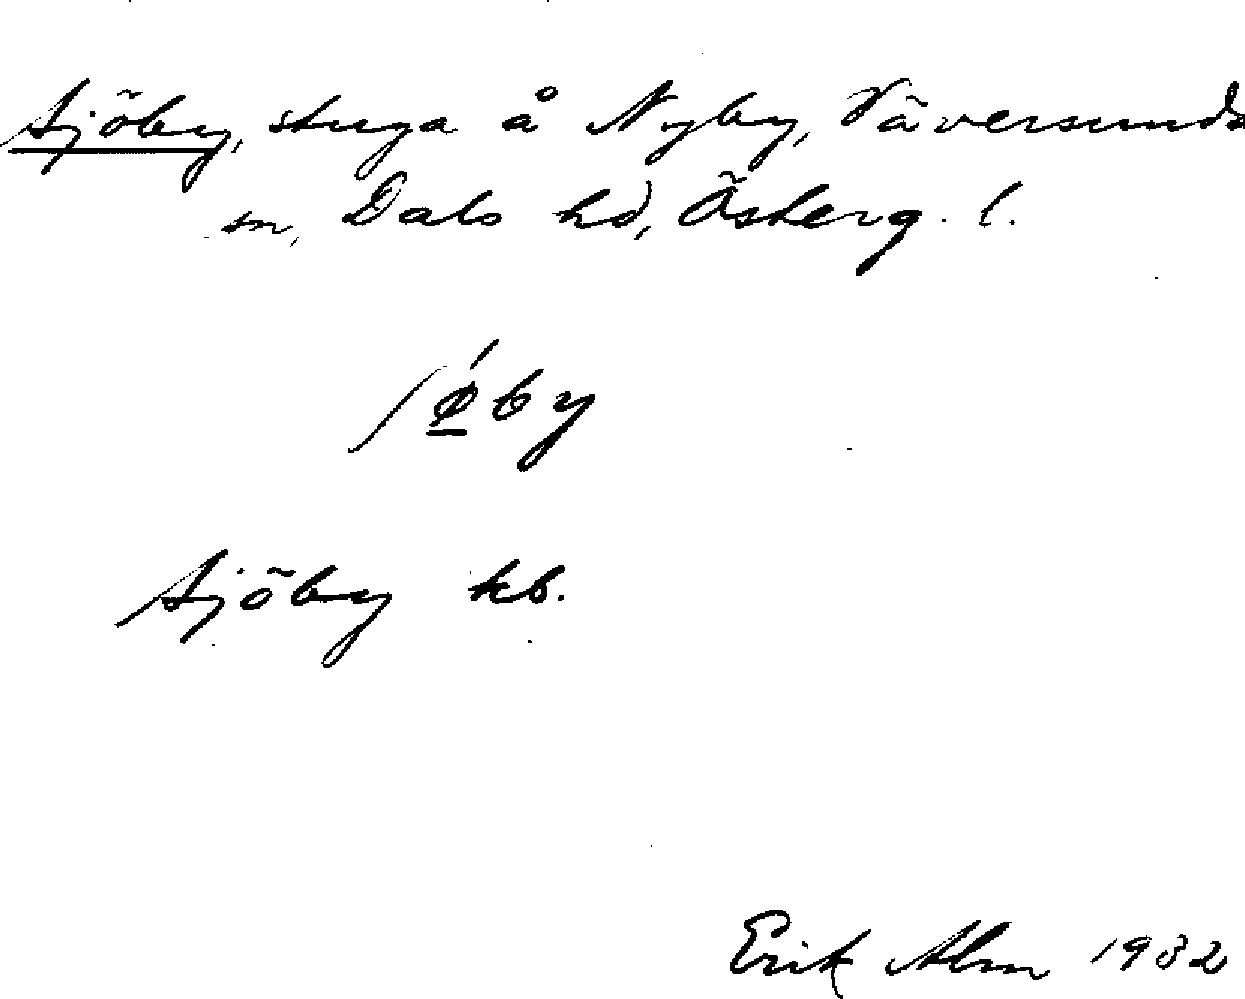 Sjöby, stuga å Nyby, Väversunds
sn, Dals hd, Österg. l.
Sjöby kb.
Erik Alm 1932